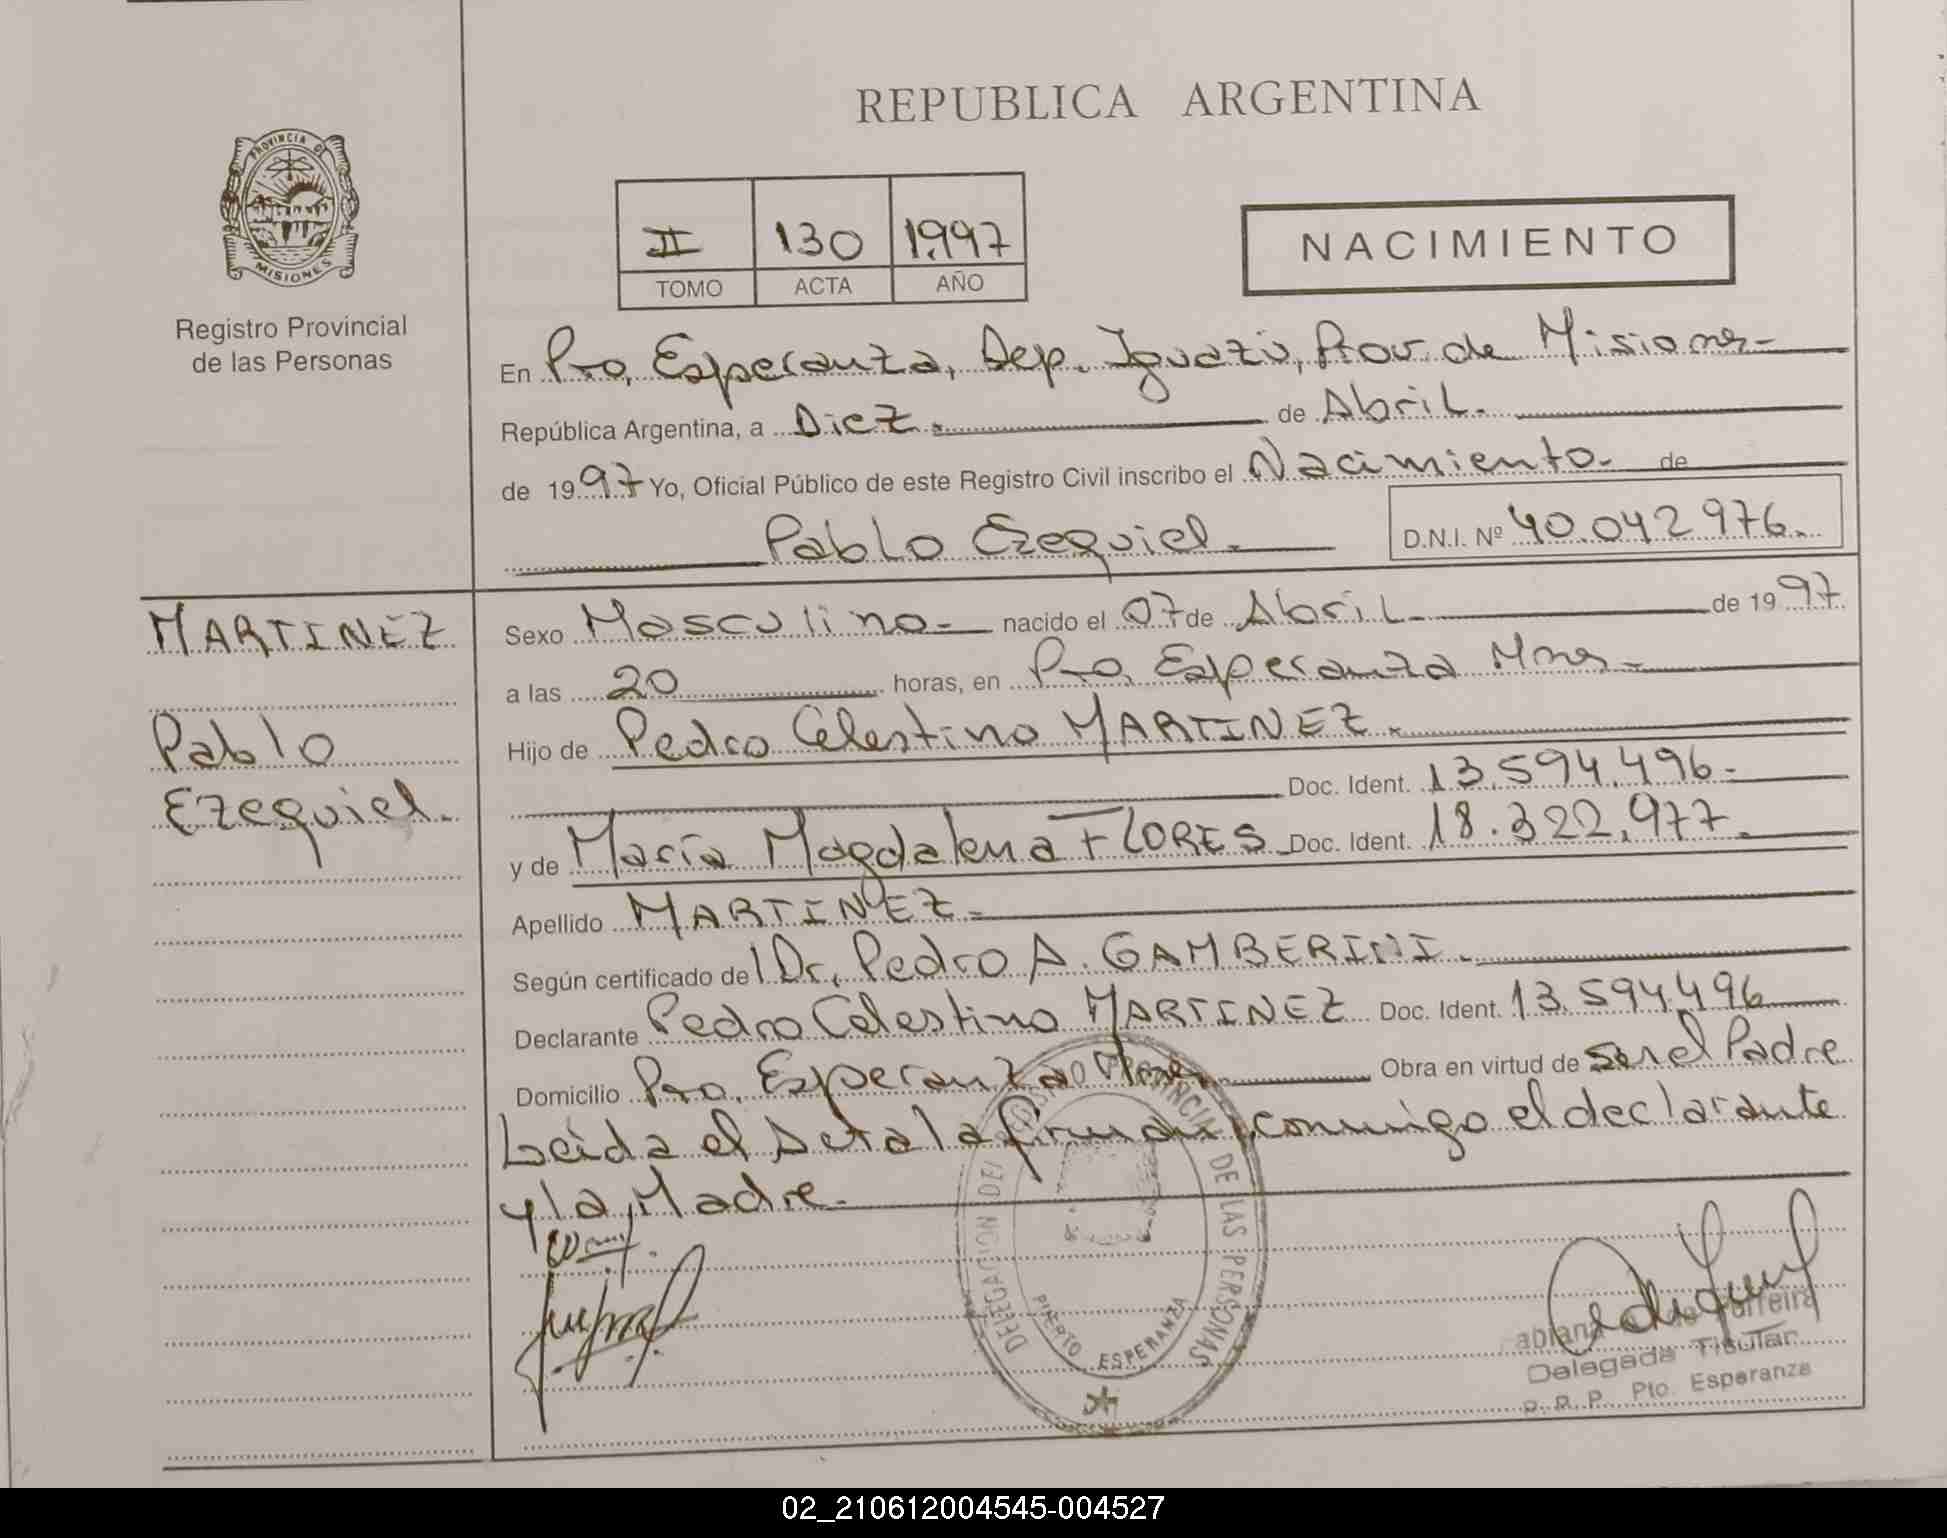 REPUBLICA ARGENTINA
PROVINCIA DE
MISIONES
Registro Provincial
de las Personas
II 130 1997
TOMO ACTA AÑO
NACIMIENTO
En Pto. Esperanza, Dep. Iguazú, Prov. de Misiones-
República Argentina, a Diez.- de Abril.
de 1997 Yo, Oficial Público de este Registro Civil inscribo el Nacimiento- de
Pablo Ezequiel.- D.N.I. Nº 40.042.976.
MARTINEZ
Pablo
Ezequiel.-
Sexo Masculino- nacido el 07 de Abril- de 1997
a las 20 horas, en Pto. Esperanza Mnes-
Hijo de Pedro Celestino MARTINEZ.
Doc. Ident. 13.594.496-
y de María Magdalena FLORES Doc. Ident. 18.322.977-
Apellido MARTINEZ-
Según certificado del Dr. Pedro A. GAMBERINI.
Declarante Pedro Celestino MARTINEZ Doc. Ident. 13.594.496
Domicilio Pto. Esperanza Mnes Obra en virtud de ser el Padre
Leida el Acta la firman conmigo el declarante
y la Madre.-
DELEGACION DEL REGISTRO PROVINCIAL DE LAS PERSONAS
PUERTO ESPERANZA
Ferreira
Delegada Titular
R. P. P. Pto. Esperanza
02_210612004545-004527